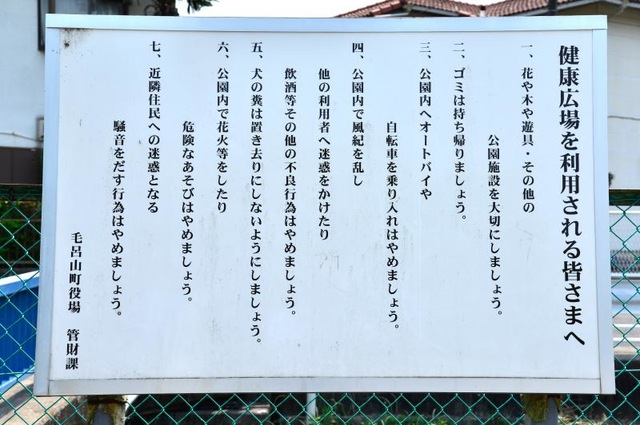 健康広場を利用される皆さまへ
一、花や木や遊具・その他の
公園施設を大切にしましょう。
二、ゴミは持ち帰りましょう。
三、公園内へオートバイや
自転車を乗り入れはやめましょう。
四、公園内で風紀を乱し
他の利用者へ迷惑をかけたり
飲酒等その他の不良行為はやめましょう。
五、犬の糞は置き去りにしないようにしましょう。
六、公園内で花火等をしたり
危険なあそびはやめましょう。
七、近隣住民への迷惑となる
騒音をだす行為はやめましょう。
毛呂山町役場 管財課